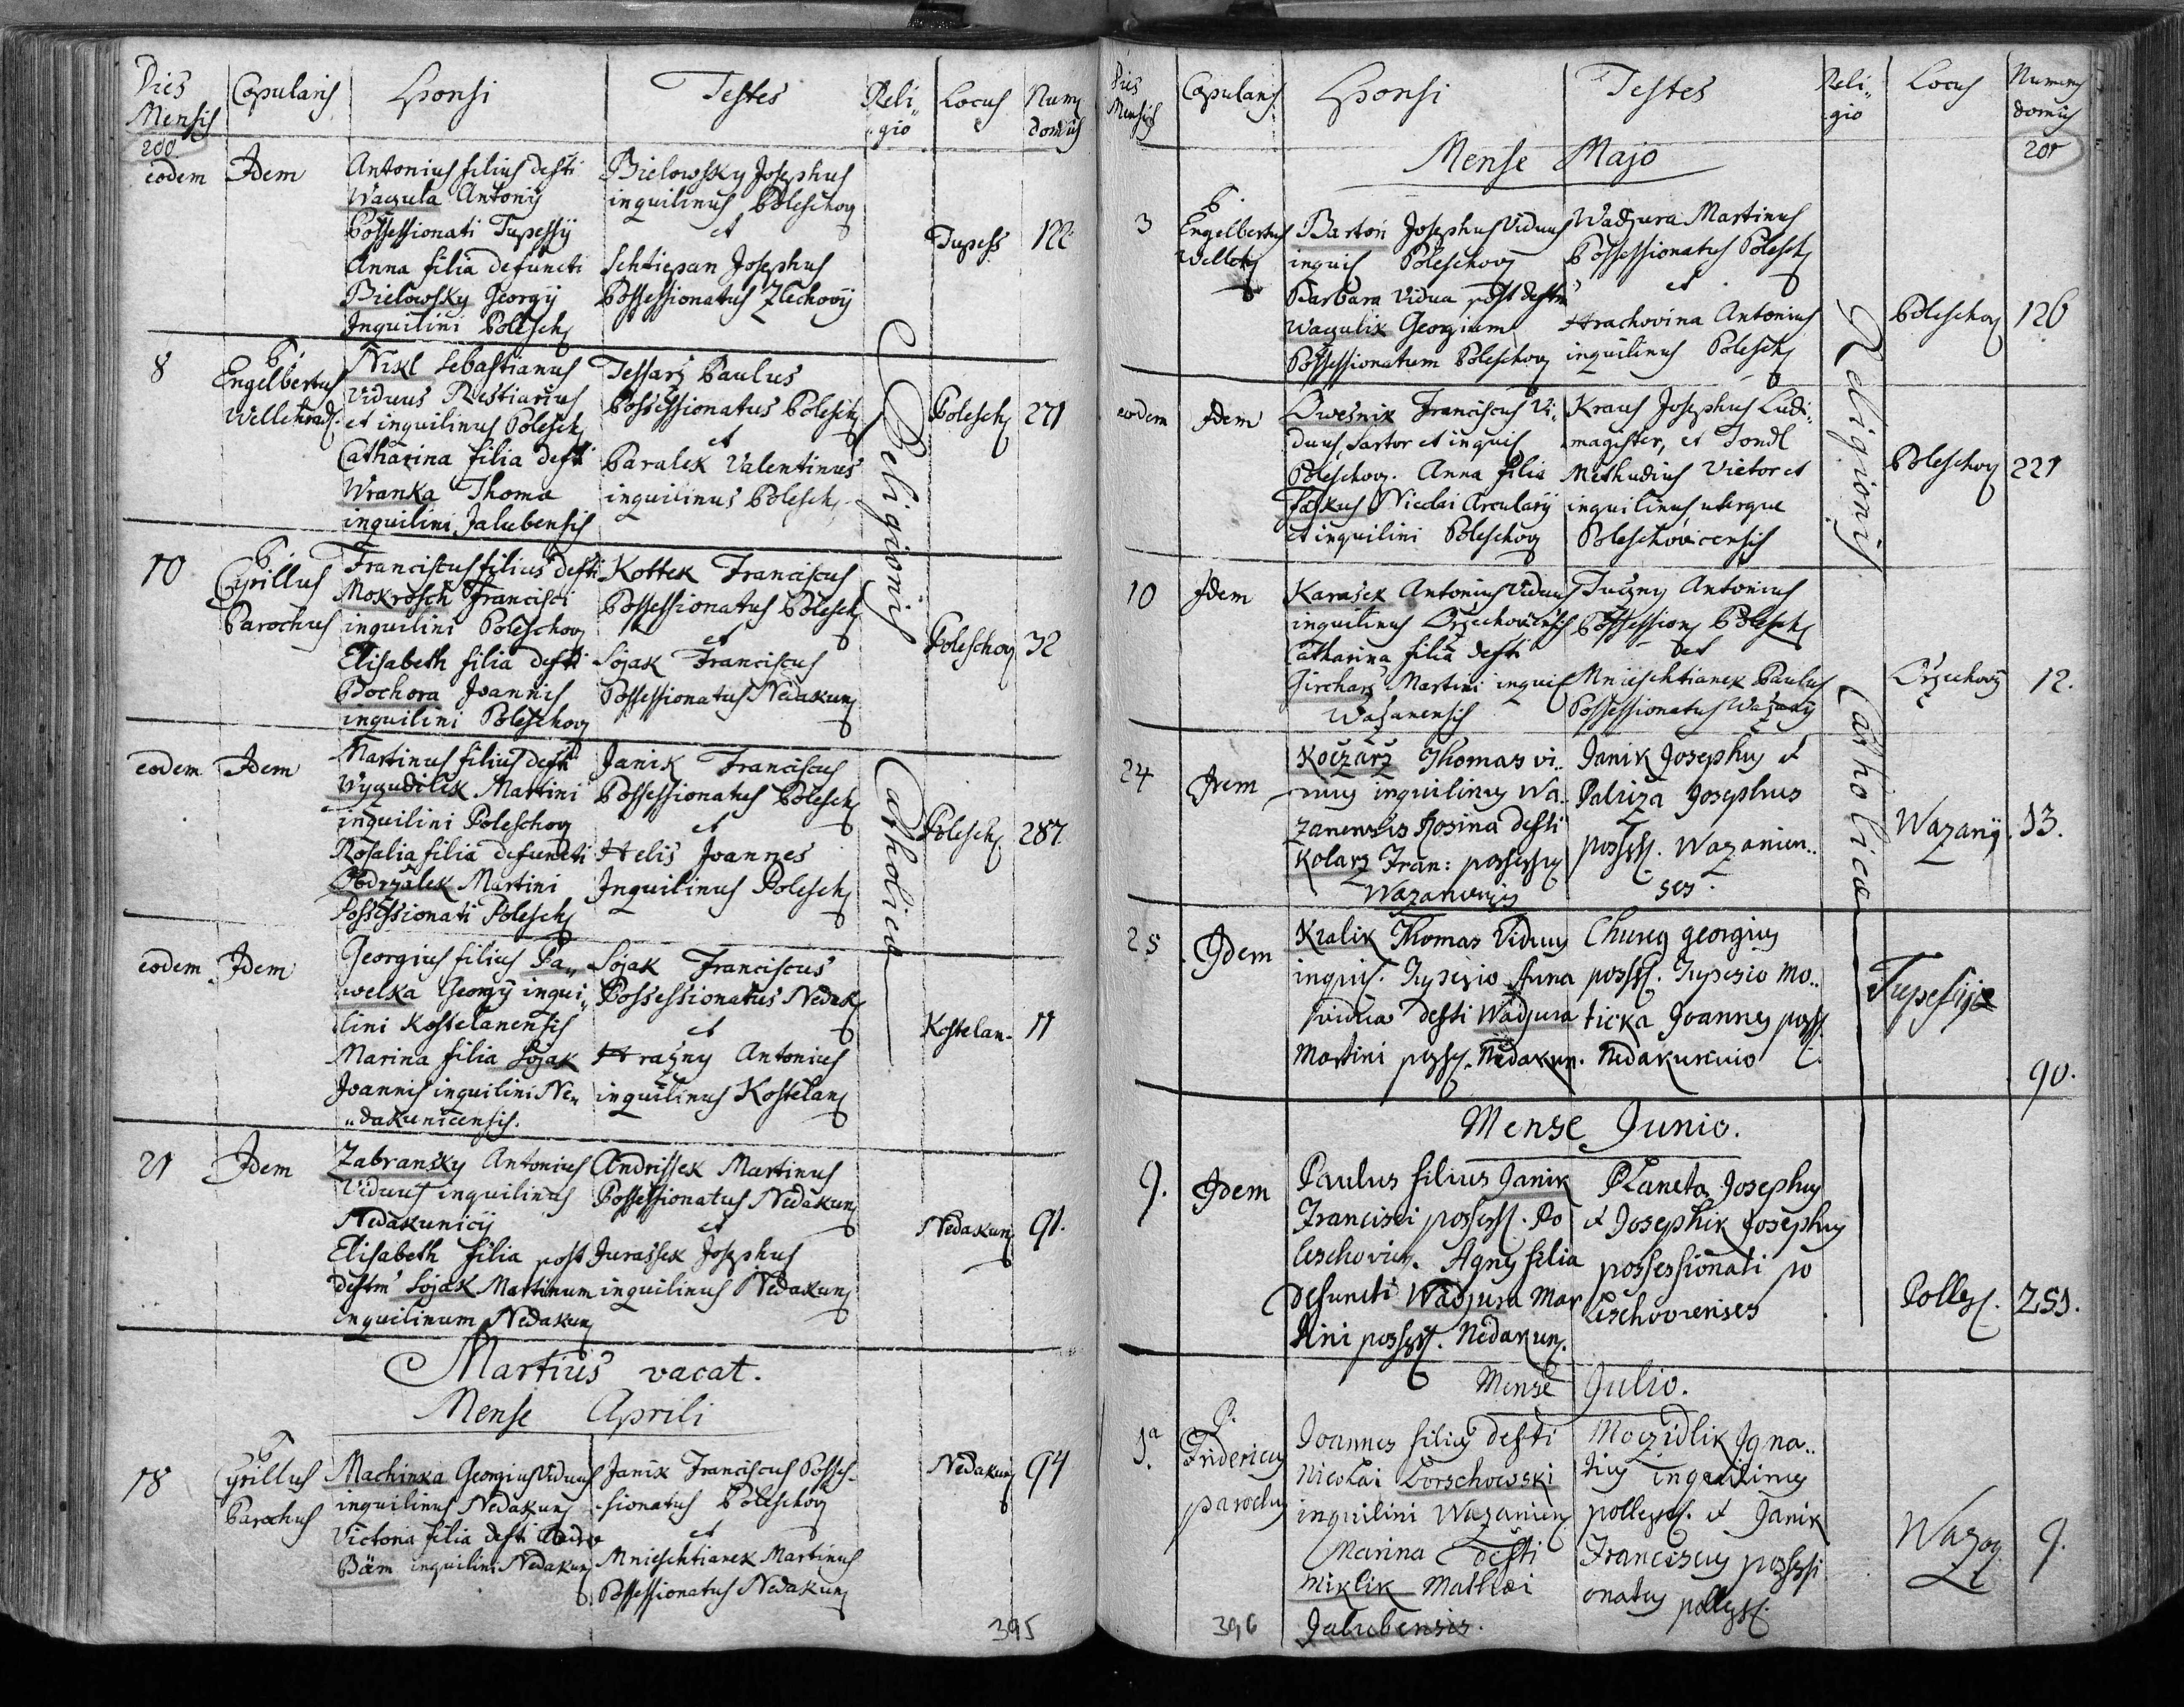 Dies Mensis
Copulans
Sponsi
Testes
Reli„gio
Locus
Num domus
200
eodem
Idem
Antonius filius defti
Waçula Antonij
Possessionati Tupessÿ
Anna filia defuncti
Bielowsky Georgÿ
Inquilini Polesch
Bielowsky Josephus
inquilinus Poleschov
et
Schtiepan Josephus
Possessionatus Zlechovÿ
Tupess
122
8
P. Engelbertus
Wellehrad.
Nikl Sebastianus
Viduus Restiarius
et inquilinus Polesch
Catharina filia defti
Wranka Thoma
inquilini Jalubensis
Tessarz Paulus
Possessionatus Polesch
et
Paralek Valentinus
inquilinus Polesch
Polesch
271
10
P. Cyrillus
Parochus
Franciscus filius defti
Mokrosch Francisci
inquilini Poleschov
Elisabeth filia defti
Bochora Joannis
inquilini Poleschov
Kottek Franciscus
Possessionatus Polesch
et
Sojak Franciscus
Possessionatus Nedakun
Poleschov
32
eodem
Idem
Martinus filius defti
Wÿzudilek Martini
inquilini Poleschov
Rosalia filia defuncti
Podrzalek Martini
Possessionati Polesch
Janik Franciscus
Possessionatus Polesch
et
Helis Joannes
Inquilinus Polesch
Polesch
287
eodem
Idem
Georgius filius Pa„
welka Georgÿ inqui„
lini Kostelanensis
Marina filia Sojak
Joannis inquilini Ne„
„dakunicensis.
Sojak Franciscus
Possessionatus Nedak
et
Hrazny Antonius
inquilinus Kostelan
Kostelan.
11
21
Idem
Zabransky Antonius
Viduus inquilinus
Nedakunicÿ
Elisabeth filia post
deftm Sojak Martinum
inquilinum Nedakun
Andrissek Martinus
Possessionatus Nedakun
et
Jurassek Josephus
inquilinus Nedakun
Nedakun
91.
Religionis Catholicæ
Martius vacat.
Mense Aprili
18
P. Cyrillus
Parochus
Machinka Georgius Viduus
inquilinus Nedakun
Victoria filia defti
Bäm inquilini Nedakun
Janik Franciscus Posses-
sionatus Poleschov
et
Mnieschtianek Martinus
Possessionatus Nedakun
Nedakun
94
395
Dies Mensis
Copulans
Sponsi
Testes
Reli„gio
Locus
Numerus domus
201
Mense Majo
3
P. Engelbertus
Welleh
Bartoň Josephus Viduus
inquil Poleschovÿ
Barbara Vidua post deftm
Waculik Georgium
Possessionatum Poleschov
Wadjura Martinus
Possessionatus Polesch
et
Hrachovina Antonius
inquilinus Polesch
Poleschov
126
eodem
Idem
Owesnik Franciscus Vi-
duus, Sartor et inquil
Poleschov. Anna filia
Faskus Nicolai Arcularÿ
et inquilini Poleschov
Kraus Josephus Ludi„
magister, et Jondl
Methudius Vietor et
inquilinus uterque
Poleschovicensis
Poleschov
221
10
Idem
Karasek Antonius Viduus
inquilinus Orzechovicensis
Catharina filia defti
Girchars Martini inquil
Wazanensis
Tuczny Antonius
Possession Polesch
et
Mnieschtianek Paulus
Possessionatus Wazanÿ
Orzechovÿ
12.
24
Idem
Koczarz Thomas vi„
duus inquilinus Wa„
zanensis Rosina defti
Kolarz Fran: possess
Wazanensis
Janik Josephus et
Paliza Josephus
possess. Wazanien„
ses.
Wazanÿ
13.
25
Idem
Kralik Thomas Viduus
inquil. Tupesio Anna
vidua defti Wadjura
Martini possess. Nedakun.
Churey Georgius
possess. Tupesio Mo„
ticka Joannes poss.
Nedakunicio
Tupesijæ
90.
Mense Junio.
9.
Idem
Paulus filius Janik
Francisci possess. Po
leschovien. Agnes filia
Defuncti Wadjura Mar
tini possess. Nedakun.
Planeta Josephus
et Josephik Josephus
possessionati Po
leschovienses
Polles.
253.
Mense Julio.
1a
P. Fridericus
parochus
Joannes filius defti
Nicolai Borschowski
inquilini Wazanien
Marina defti
Miklik Mathæi
Jalubensis.
Moczidlik Igna„
tius inquilinus
polles. et Janik
Franciscus possessi
onatus polles.
Wazan
9.
Religionis Catholicæ
396